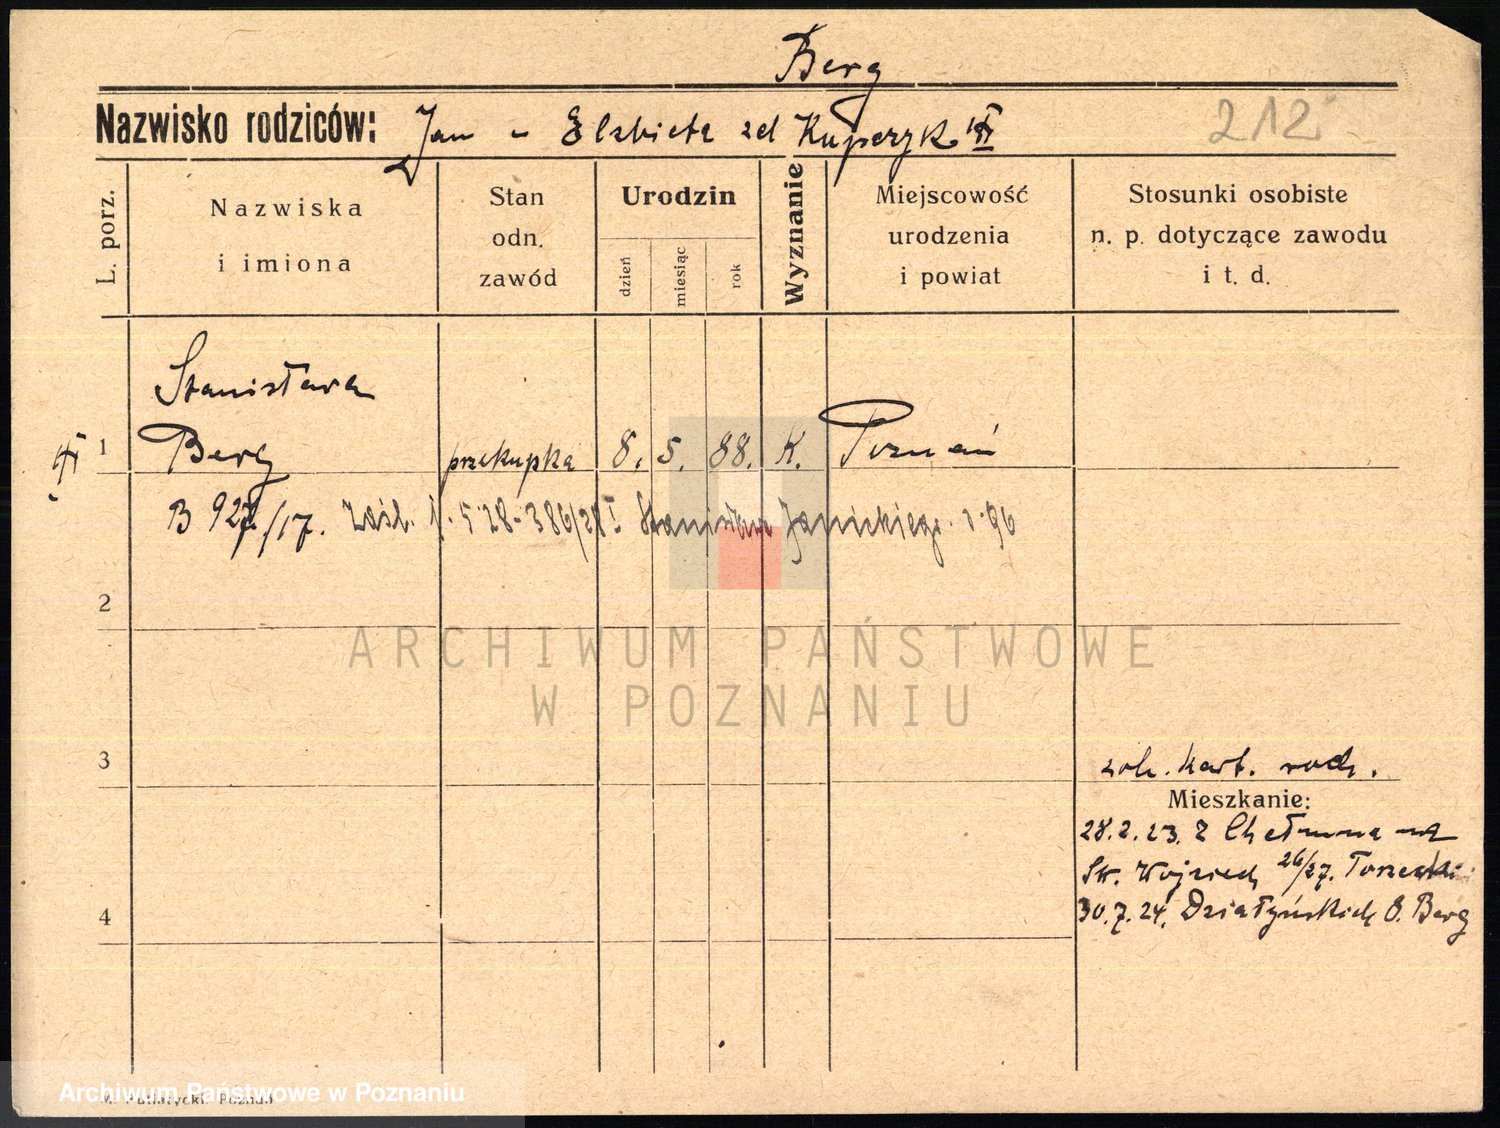 Berg
Nazwisko rodziców: Jan - Elżbieta zd Kuperzyk
212
L. porz.
Nazwiska i imiona
Stan odn. zawód
Urodzin
dzień
miesiąc
rok
Wyznanie
Miejscowość urodzenia i powiat
Stosunki osobiste n. p. dotyczące zawodu i t. d.
Stanisława
1 Berg przekupka 8. 5. 88. K. Poznań
B 927/17. Zaśl. 1. 5 28 - 386/28 I Stanisław Janickiego
2
ARCHIWUM PAŃSTWOWE
W POZNANIU
3
zob. kart. rodz.
Mieszkanie:
28.2.23. z Chełmna na
Św. Wojciech 26/27.
4
30.7.24. Działyńskich 8. Berg
Archiwum Państwowe w Poznaniu
Poznań